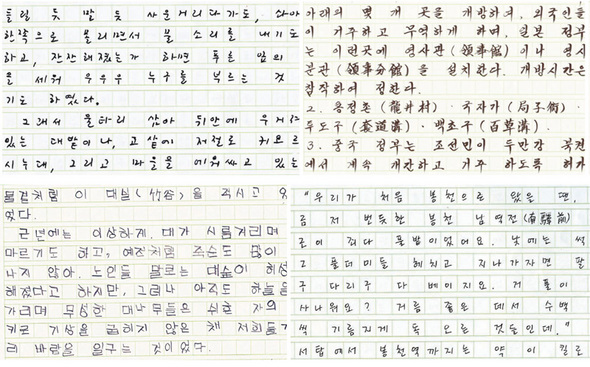 들릴 듯 말 듯 사운거리다가도, 솨아
한쪽으로 몰리면서 물 소리를 내기도
하고, 잔잔해졌는가 하면 푸른 잎의
을 세워 우우우 누구를 부르는 것
기도 하였다.
그래서 울타리 삼아 뒤안에 우거
있는 대밭이나, 고샅에 저절로 커오르
시누대, 그리고 마을을 에워싸고 있는
아래의 몇 개 곳을 개방하여, 외국인들
이 거주하고 무역하게 하며, 일본 정부
는 이런곳에 영사관(領事館)이나 영사
분관(領事分館)을 설치한다. 개방시간은
참작하여 정한다.
2. 용정촌(龍井村)·국자가(局子街)·
두도구(套道溝)·백초구(百草溝)
3. 중국 정부는 조선민이 두만강 북쪽
에서 계속 개간하고 거주 하도록 허가
물결처럼 이 대실(竹谷)을 적시고 있
었다.
근년에는 이상하게 대가 시름거리며
마르기도 하고, 예전처럼 죽순도 많이
나지 않아, 노인들 말로는 대숲이 허성
해졌다고 하지만, 그러나 아직도 하늘을
가리며 무성한 대나무들은 쉬흔 자의
키로 기상을 굽히지 않은 채 저희들끼
리 바람을 일구는 것이었다.
"우리가 처음 봉천으로 왔을 땐,
름 저 번듯한 봉천 남역전(南驛前)
곤이 죄다 풀밭이었어요. 낮에는 썩
그 풀더미들 헤치고 지나가자면 팔
구 다리구 다 베이지요. 거 풀이
사나워요? 거름 좋은 데서 수백
씩 기름지게 독 오른 것들인데."
서탑에서 봉천역까지는 약 이 킬로